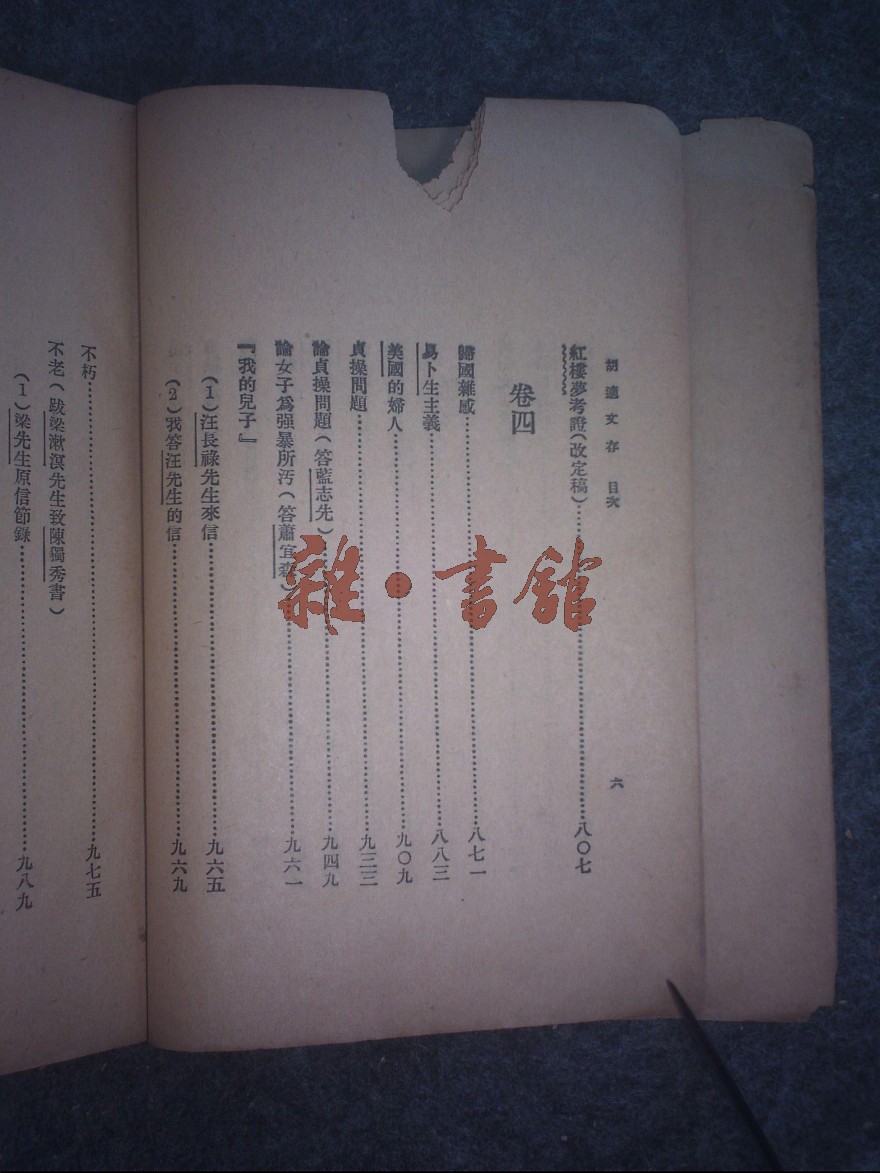 胡適文存 目次
六
紅樓夢考證(改定稿)……八〇七
卷四
歸國雜感……八七一
易卜生主義……八八三
美國的婦人……九〇九
貞操問題……九三三
論貞操問題(答藍志先)……九四九
論女子為强暴所汚(答蕭宜森)……九六一
『我的兒子』
(1)汪長祿先生來信……九六五
(2)我答汪先生的信……九六九
不朽……九七五
不老(跋梁漱溟先生致陳獨秀書)
(1)梁先生原信節錄……九八九
雜·書館